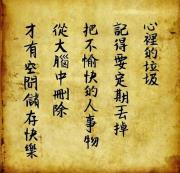 心裡的垃圾
記得要定期丟掉
把不愉快的人事物
從大腦中刪除
才有空間儲存快樂